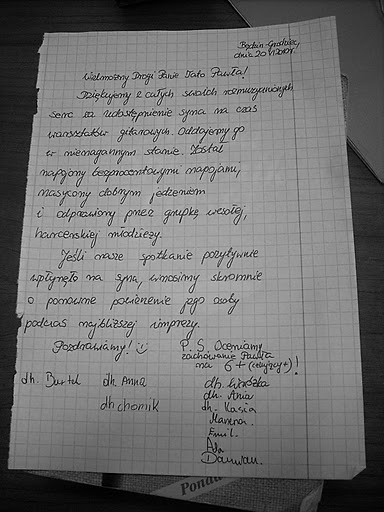 Będzin-Grodziec,
dnia 20 VI 2010r.
Wielmożny Drogi Panie Tato Pawła!
Dziękujemy z całych swoich rozmuzykowanych
serc za udostępnienie syna na czas
warsztatów gitarowych. Oddajemy go
w nienagannym stanie. Został
napojony bezprocentowymi napojami,
nasycony dobrym jedzeniem
i odprawiony przez grupkę wesołej,
harcerskiej młodzieży.
Jeśli nasze spotkanie pozytywnie
wpłynęło na syna, wnosimy skromnie
o ponowne powierzenie jego osoby
podczas najbliższej imprezy.
Pozdrawiamy!
P.S. Oceniamy
zachowanie Pawła
na 6+ (celujący+)!
dh. Bartek dh. Anna dh. Wróżka
dh. Ania
dh chomik dh. Kasia
Emil.
Ada
Damian.